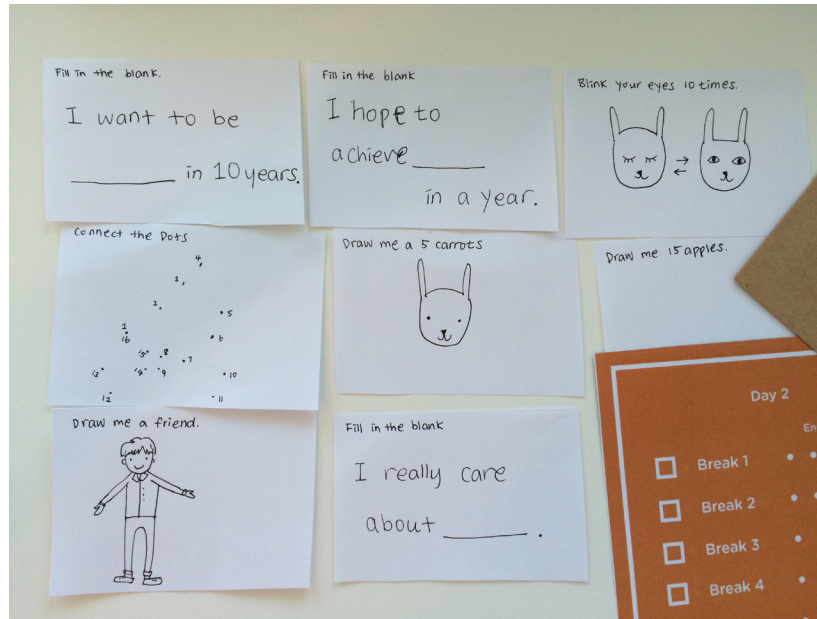 Fill in the blank.
I want to be
________ in 10 years.
Fill in the blank
I hope to
achieve ______
in a year.
Blink your eyes 10 times.
Connect the Dots
4
3
2
5
1
16
6
15
8
7
13
14
9
10
12
11
Draw me a 5 carrots
Draw me 15 apples.
Draw me a friend.
Fill in the blank
I really care
about _______.
Day 2
En
Break 1
Break 2
Break 3
Break 4